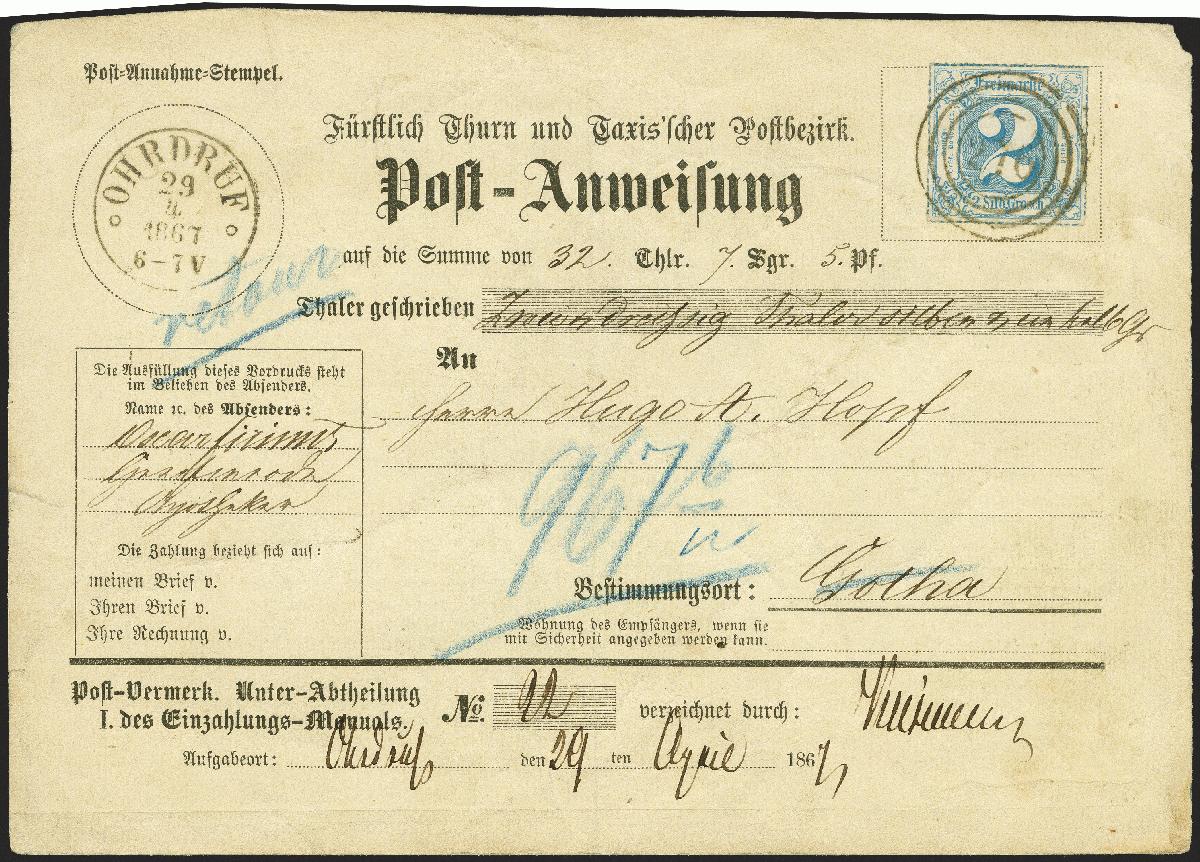 Post-Annahme-Stempel.
OHRDRUF
29
4
1867
6-7 V
Freimarke
2
Silbergrosch.
Fürstlich Thurn und Taxis'scher Postbezirk.
Post-Anweisung
auf die Summe von 32. Thlr. 7. Sgr. 5. Pf.
retour
Thaler geschrieben Zweiundreissig Thaler sieben
An
Herrn Hugo A. Hopf
Die Ausfüllung dieses Vordrucks steht
im Belieben des Absenders.
Name ꝛc. des Absenders:
Graefenroda
Apotheker
Die Zahlung bezieht sich auf:
meinen Brief v.
Ihren Brief v.
Ihre Rechnung v.
967 b
Bestimmungsort: Gotha
Wohnung des Empfängers, wenn sie
mit Sicherheit angegeben werden kann.
Post-Vermerk. Unter-Abtheilung
I. des Einzahlungs-Manuals.
No. 22 verzeichnet durch:
Aufgabeort: Ohrdruf den 29 ten April 1867